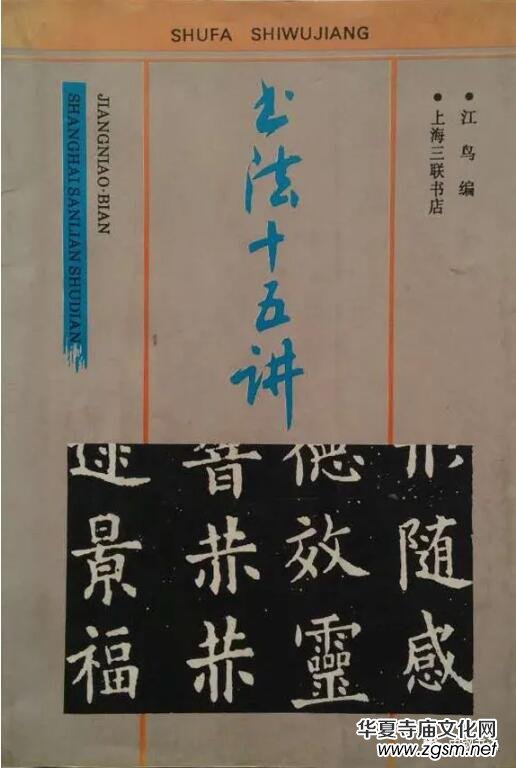 SHUFA SHIWUJIANG
书法十五讲
• 江鸟 编
• 上海三联书店
JIANGNIAO·BIAN
SHANGHAI SANLIAN SHUDIAN
随感
德效靈
赫赫
景福
华夏寺庙文化网
www.zgsm.net